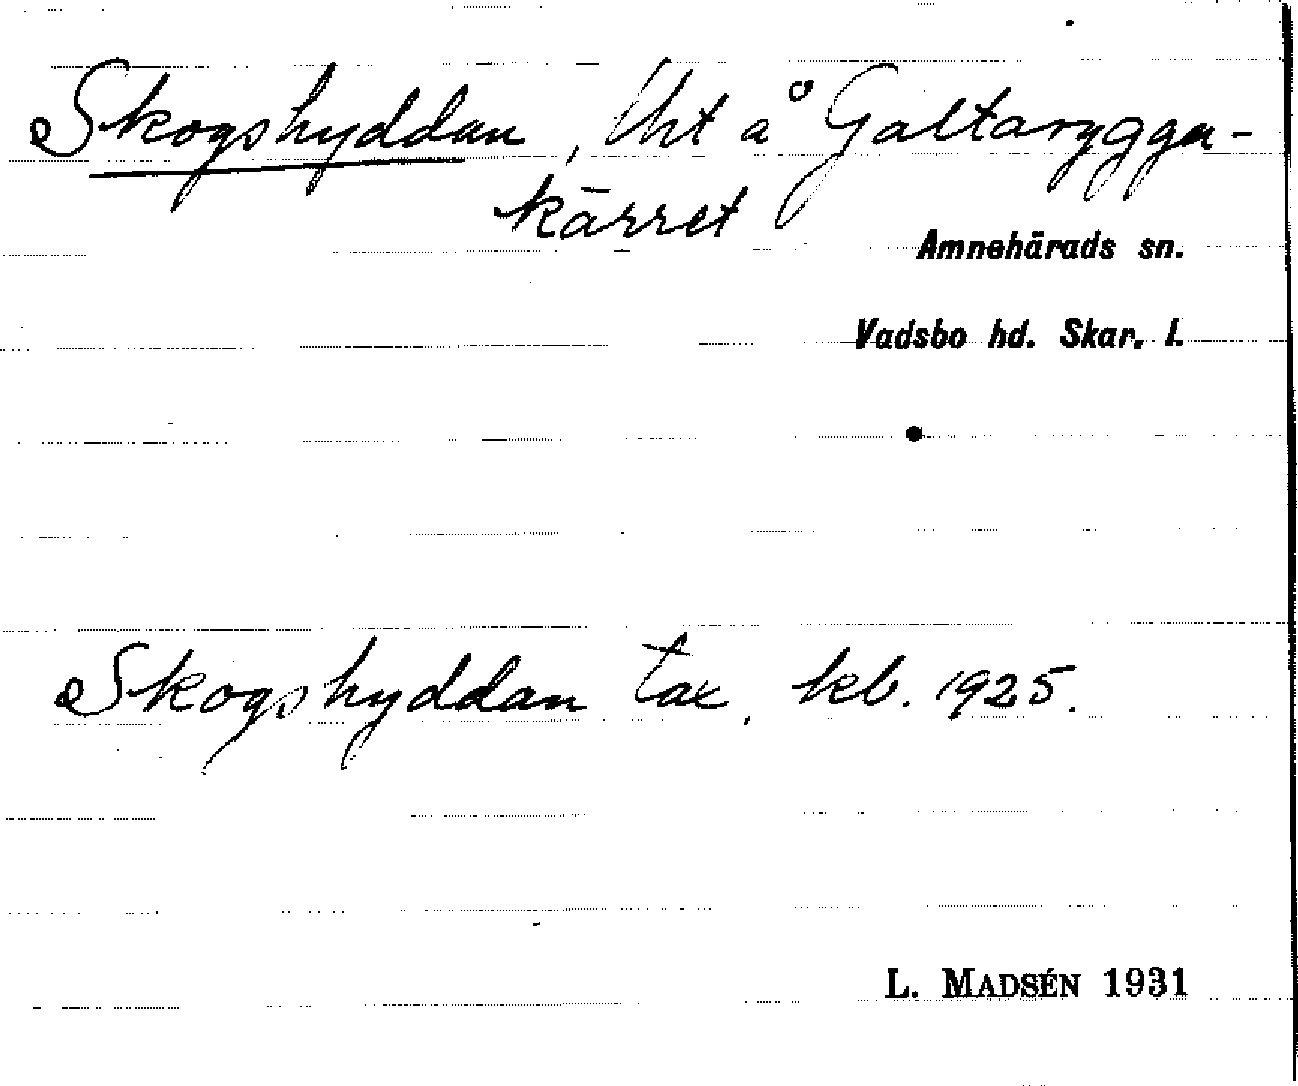 Skogshyddan, lht å Galtarygga-
kärret
Amnehärads sn.
Vadsbo hd. Skar. l.
Skogshyddan tax. kb. 1925.
L. MADSÉN 1931